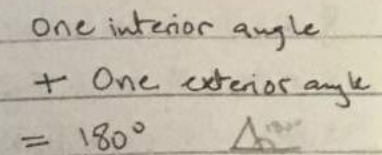 One interior angle
+ One exterior angle
= 180° 180°